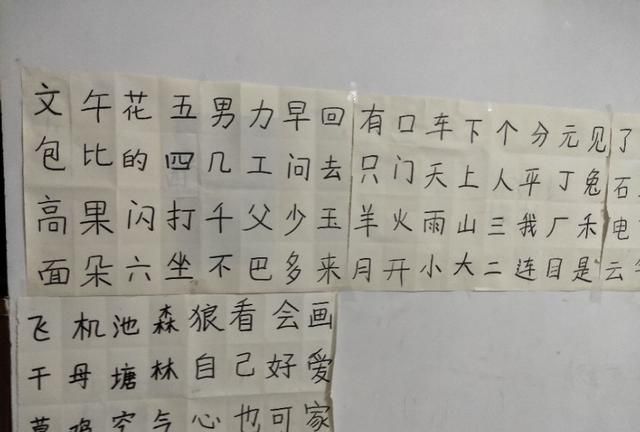 文午花五男力早回有口车下个分元见了
包比的四几工问去只门天上人平丁兔石
高果闪打千父少玉羊火雨山三我厂禾电
面朵六坐不巴多来月开小大二连目是云
飞机池森狼看会画
干母塘林自己好爱
空气心也可家